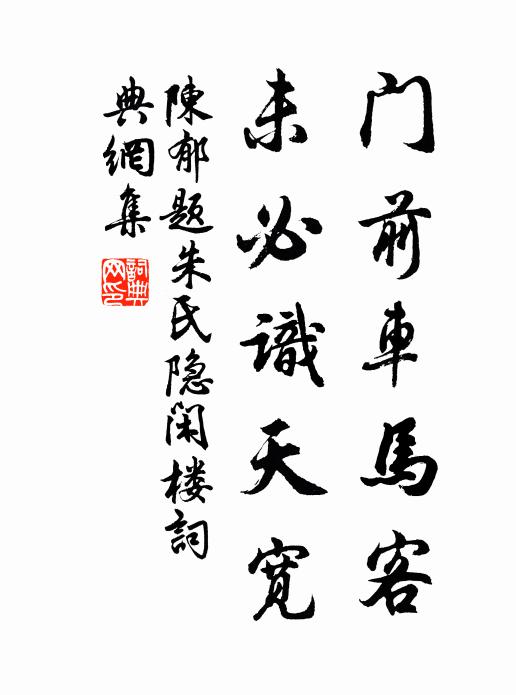 门前車馬客
未必識天寬
陳郁題朱氏隐闲楼詞
典網集
詞典网印